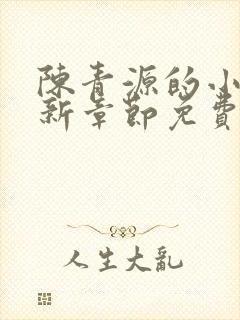 陳青源的小
新章節免費
人生大亂